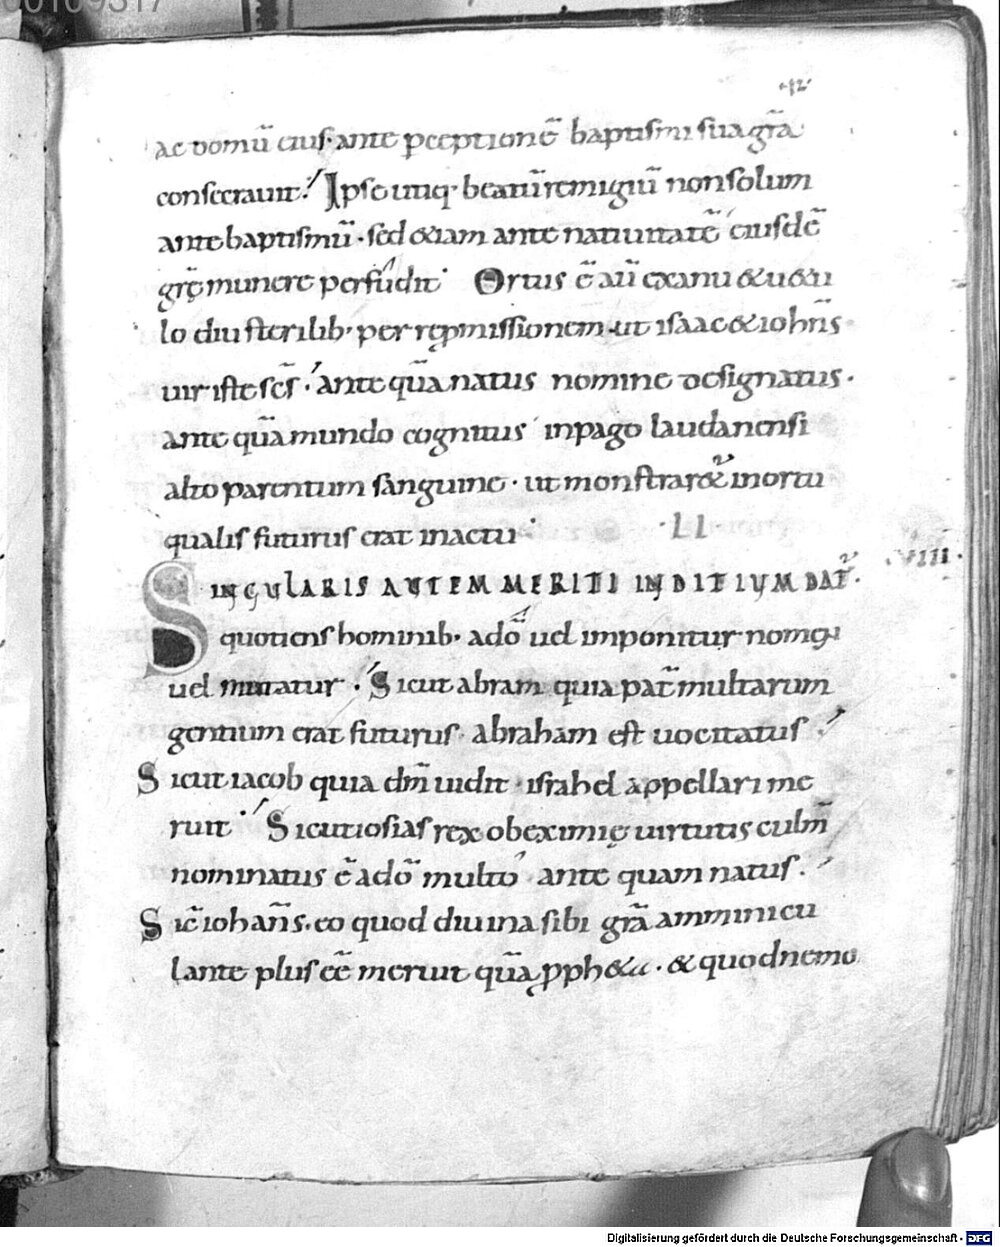 00109317
42
ac domū eiuſ· ante ꝑceptionē baptiſmi ſua gr̄a
conſecrauit·́ Ipſe utiq· beatū remigiū non ſolum
ante baptiſmū· ſed &iam ante natiuitatē eiuſdē
gr̄ę munere perfúdit· Ortus ē aū ex anu & u&u
lo diu ſterilib· per rępmiſſionem ut iſaac & ioh̄nſ
uir iſte ſc̄ſ·́ ante quā natus nomine deſignatus·
ante quā mundo cognitus in pago laudanenſi
alto parentum ſanguine· ut monſtrar& in ortu
qualiſ futuruſ erat in actu· LI
SINGULARIS AUTEM MERITI INDITIUM DAT̄· ·VIII·
quotienſ hominib· a dō uel imponitur nomen
uel mutatur·́ Sicut abram quia pat̄ multarum
gentium erat futuruſ· abraham eſt uocitatuſ·́
Sicut iacob quia dm̄ uidit· iſrahel appellari me
ruit·́ Sicut ioſiaſ rex ob eximię uirtutis culm̄
nominatus ē a dō multo ante quam natuſ·́
Sic̄ iohan̄s· eo quod diuina ſibi gr̄a amminicu
lante pluſ eē meruit quā ꝓph&a· & quod nemo
Digitalisierung gefördert durch die Deutsche Forschungsgemeinschaft - DFG